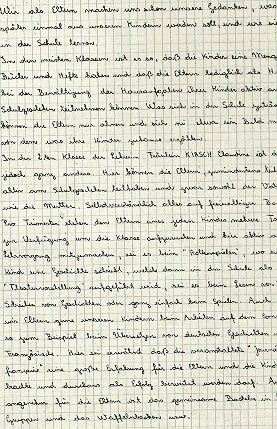 Wir als Eltern machen uns schon unsere Gedanken, was
später einmal aus unseren Kindern werden soll und wie sie
in der Schule lernen.
In den meisten Klassen ist es so, daß die Kinder eine Menge
Bücher und Hefte haben und daß die Eltern lediglich als
bei der Bewältigung der Hausaufgaben ihrer Kinder aktiv am
Schulgeschehen teilnehmen können. Was sich in der Schule
können die Eltern nur ahnen und sich ein Bild
von dem was ihre Kinder zuhause erzählen.
In der 2ten Klasse der Lehrerin Fräulein KIRSCH Claudine ist
jedoch ganz anders. Hier können die Eltern,
aktiv am Schulgeschehen teilhaben und zwar sowohl der Vater
wie die Mutter. Selbstverständlich alles auf freiwilliger
Pro Trimester stehen den Eltern eines jeden Kindes mehrere
zur Verfügung um die Klasse aufzusuchen und hier aktiv
mitzumachen, sei es beim "Rollenspielen", wo
Kind eine Geschichte schreibt, welche dann in der Schule als
"Theatervorstellung" aufgeführt wird, sei es beim Lesen von
Schreiben von Geschichten oder ganz einfach beim Spielen. Auch
wir Eltern gerne unseren Kindern beim Arbeiten auf dem
so zum Beispiel beim Übersetzen von deutschen Geschichten
Französische. Hier sei erwähnt daß die veranstaltete "journée
française" eine große Erfahrung für die Eltern und die Kinder
brachte und durchaus als Erfolg bewertet werden darf.
angenehm für die Eltern ist das gemeinsame Basteln in
Gruppen und das Waffelnbacken usw.